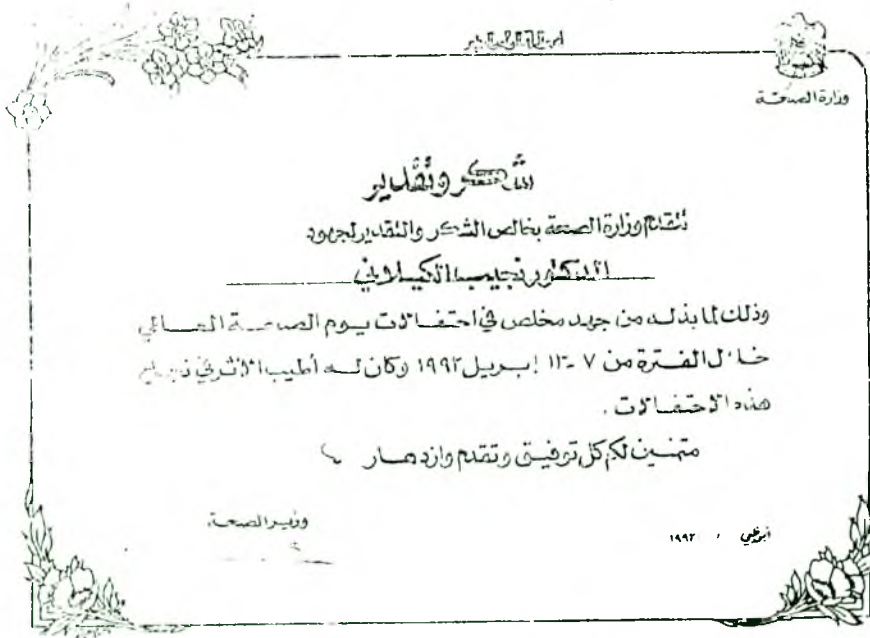 وزارة الصحة
شكر وتقدير
تتقدم وزارة الصحة بخالص الشكر والتقدير لجهود
الدكتور نجيب الكيلاني
وذلك لما بذله من جهد مخلص في احتفالات يوم الصحة العالمي
خلال الفترة من ٧ - ١٣ إبريل ١٩٩٢ وكان له أطيب الأثر في نجاح
هذه الاحتفالات .
متمنين لكم كل توفيق وتقدم وازدهار
وزير الصحة
أبوظبي ١٩٩٢